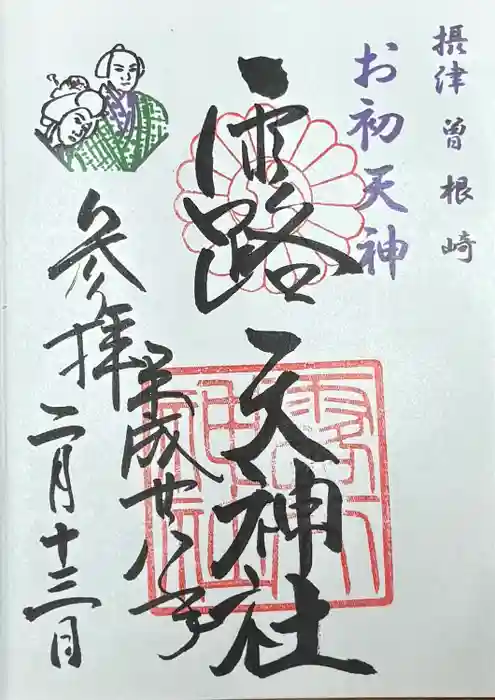 摂津 曽根崎
お初天神
露天神社
平成廿八年
参拝 二月十三日